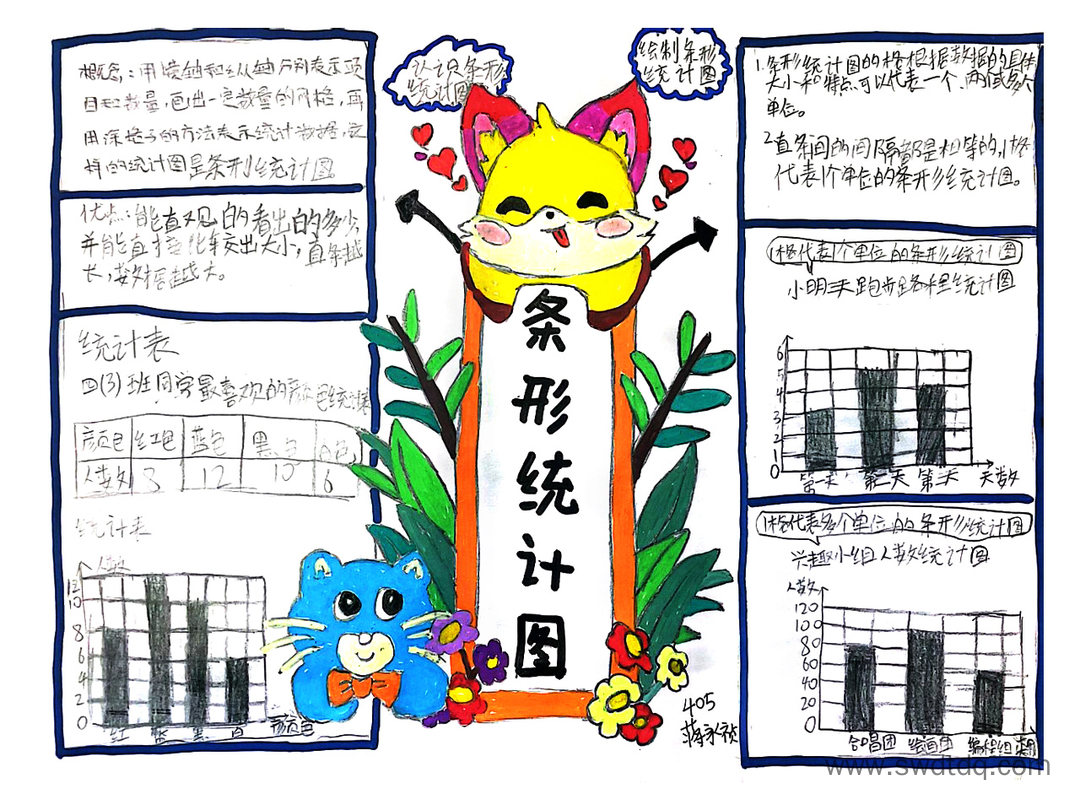 认识条形
统计图
概念：用横轴和纵轴分别表示项
目和数量，画出一定数量的网格，再
用涂格子的方法表示统计数据，这
样的统计图是条形统计图
优点：能直观的看出的多少，
并能直接比较出大小，直条越
长，数据越大。
统计表
四(3)班同学最喜欢的颜色统计表
颜色 红色 蓝色 黑色 白色
人数 8 12 10 6
统计表
人数
12
10
8
6
4
2
0
红 蓝 黑 白 颜色
条形统计图
405
绘制条形
统计图
1.条形统计图的格根据数据的具体
大小和特点可以代表一个、两个或多个
单位。
2.直条间的间隔都是相等的,1格
代表1个单位的条形统计图。
1格代表1个单位的条形统计图
小明三天跑步路程统计图
6
5
4
3
2
1
0
第一天 第二天 第三天 天数
1格代表多个单位的条形统计图
兴趣小组人数统计图
人数
120
100
80
60
40
20
0
合唱团 绘画团 编程组 类别
www.swdtdq.com